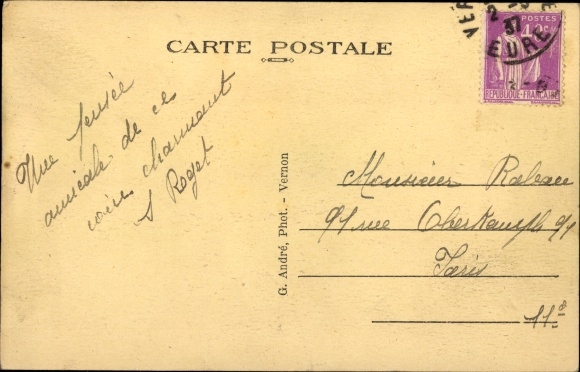 CARTE POSTALE
Une pensée
amicale de ce
coin charmant
S Roget
G. André, Phot. - Vernon
POSTES
REPUBLIQUE FRANÇAISE
VER
37
EURE
Monsieur Rabau
91 rue Oberkampf 91
Paris
11e